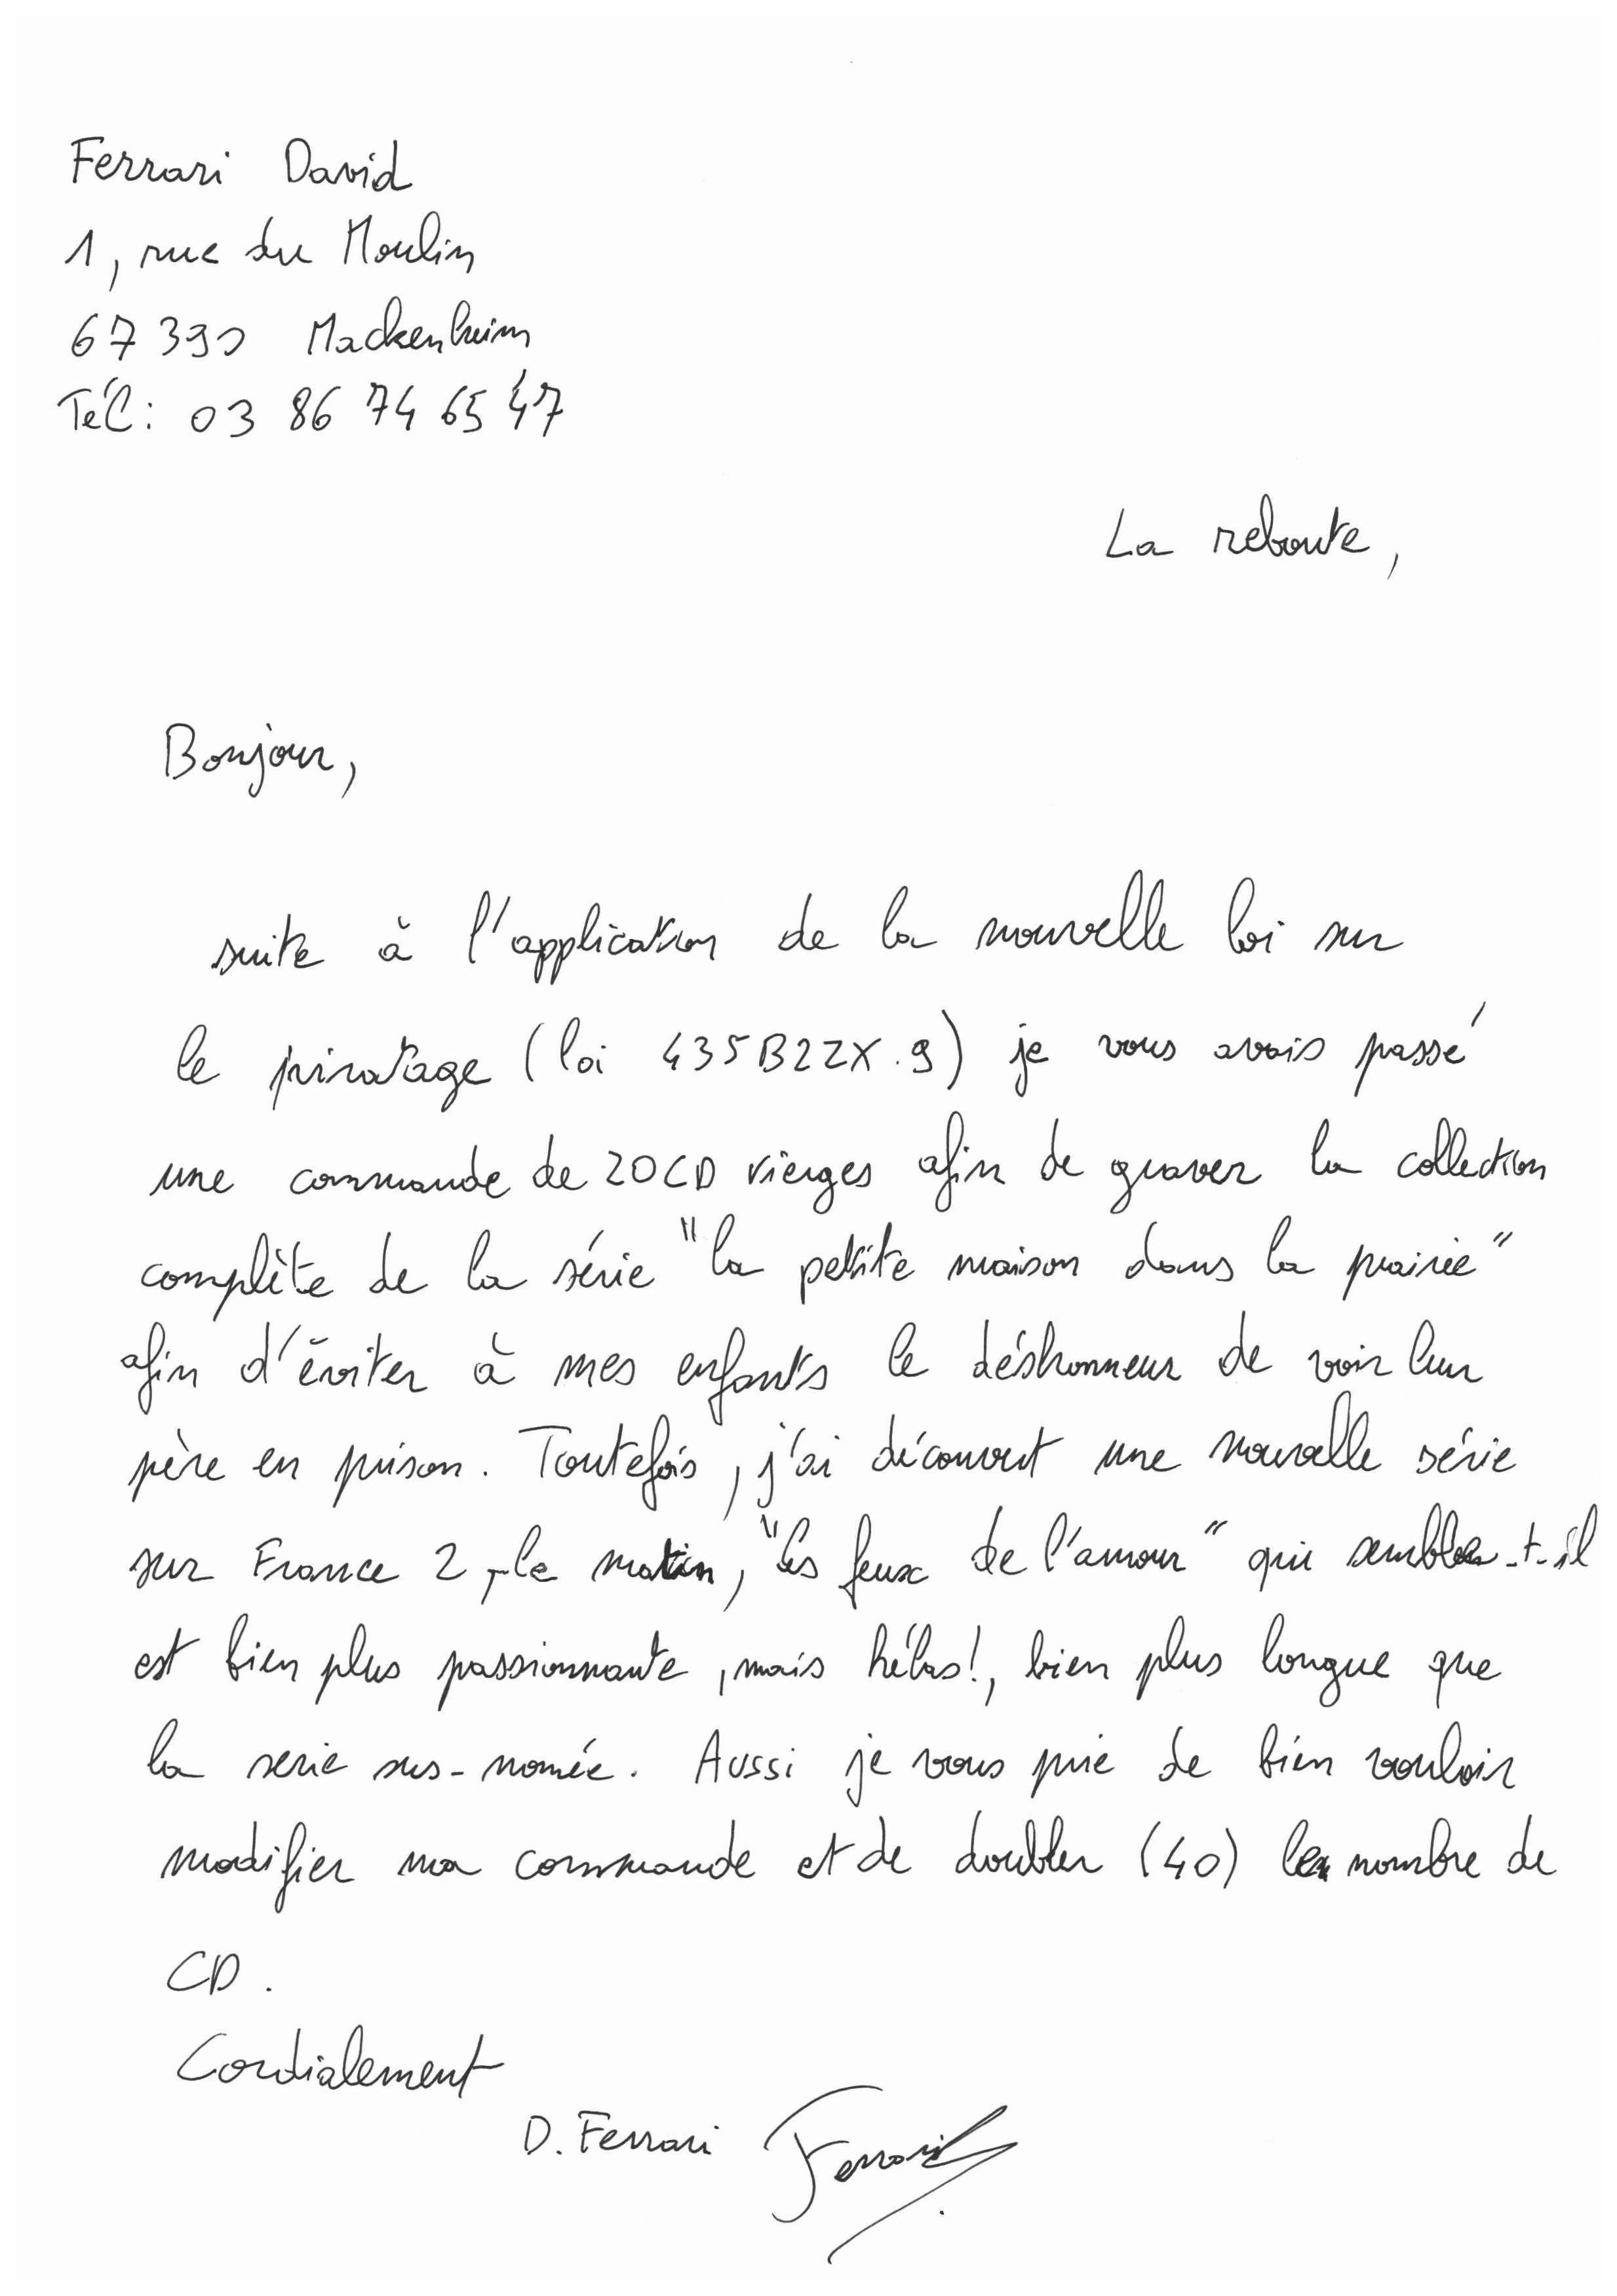 Ferrari David
1, rue du Moulin
67390 Mackenheim
Tél: 03 86 74 65 47
La reboute,
Bonjour,
suite à l'application de la nouvelle loi sur
le piratage (loi 435B2ZX.9) je vous avais passé
une commande de 20CD vierges afin de graver la collection
complète de la série "la petite maison dans la prairie"
afin d'éviter à mes enfants le déshonneur de voir leur
père en prison. Toutefois, j'ai découvert une nouvelle série
sur France 2, le matin, "les feux de l'amour" qui semble-t-il
est bien plus passionnante, mais hélas!, bien plus longue que
la serie sus-nomée. Aussi je vous prie de bien vouloir
modifier ma commande et de doubler (40) le nombre de
CD.
Cordialement
D. Ferrari Ferrari